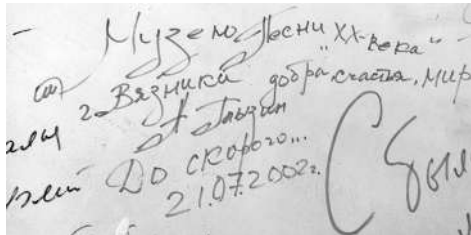 Музею Песни XX-века"
г. Вязники добра, счастья, мир
А Глызин
До скорого...
21.07.2002г.